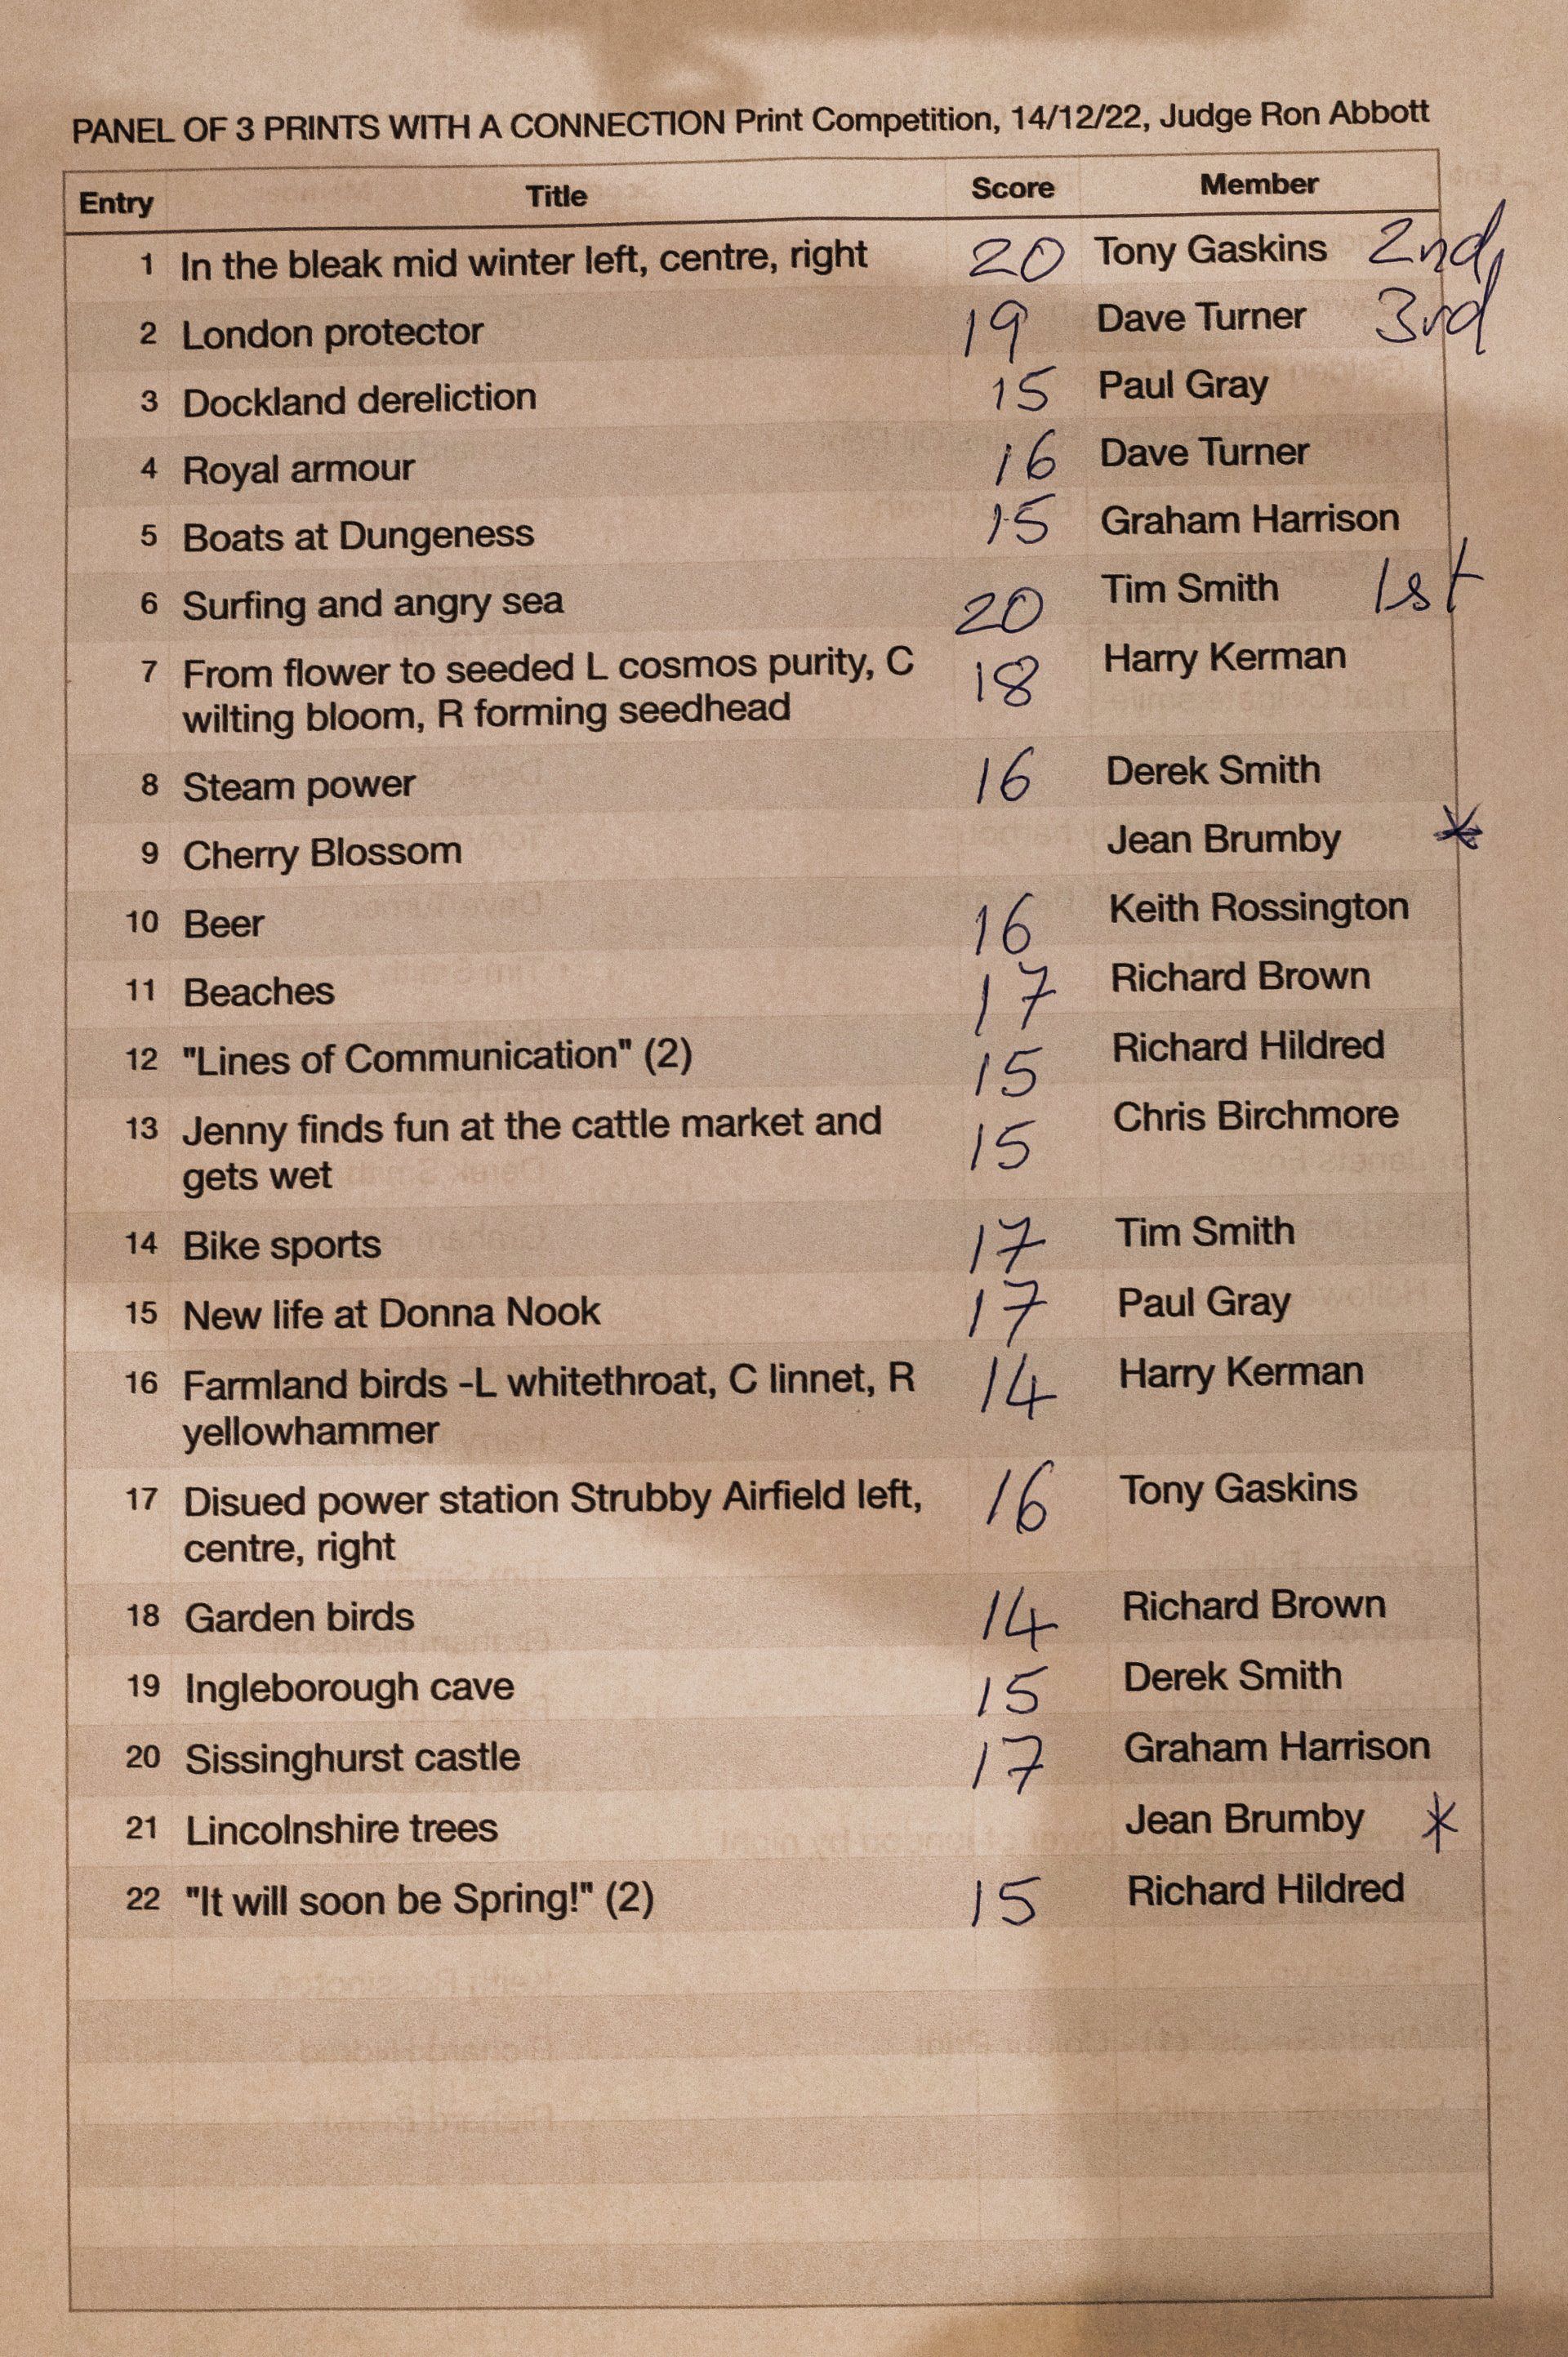 PANEL OF 3 PRINTS WITH A CONNECTION Print Competition, 14/12/22, Judge Ron Abbott
Entry Title Score Member
1 In the bleak mid winter left, centre, right 20 Tony Gaskins 2nd
2 London protector 19 Dave Turner 3rd
3 Dockland dereliction 15 Paul Gray
4 Royal armour 16 Dave Turner
5 Boats at Dungeness 15 Graham Harrison
6 Surfing and angry sea 20 Tim Smith 1st
7 From flower to seeded L cosmos purity, C 18 Harry Kerman
wilting bloom, R forming seedhead
8 Steam power 16 Derek Smith
9 Cherry Blossom Jean Brumby *
10 Beer 16 Keith Rossington
11 Beaches 17 Richard Brown
12 "Lines of Communication" (2) 15 Richard Hildred
13 Jenny finds fun at the cattle market and 15 Chris Birchmore
gets wet
14 Bike sports 17 Tim Smith
15 New life at Donna Nook 17 Paul Gray
16 Farmland birds -L whitethroat, C linnet, R 14 Harry Kerman
yellowhammer
17 Disued power station Strubby Airfield left, 16 Tony Gaskins
centre, right
18 Garden birds 14 Richard Brown
19 Ingleborough cave 15 Derek Smith
20 Sissinghurst castle 17 Graham Harrison
21 Lincolnshire trees Jean Brumby *
22 "It will soon be Spring!" (2) 15 Richard Hildred